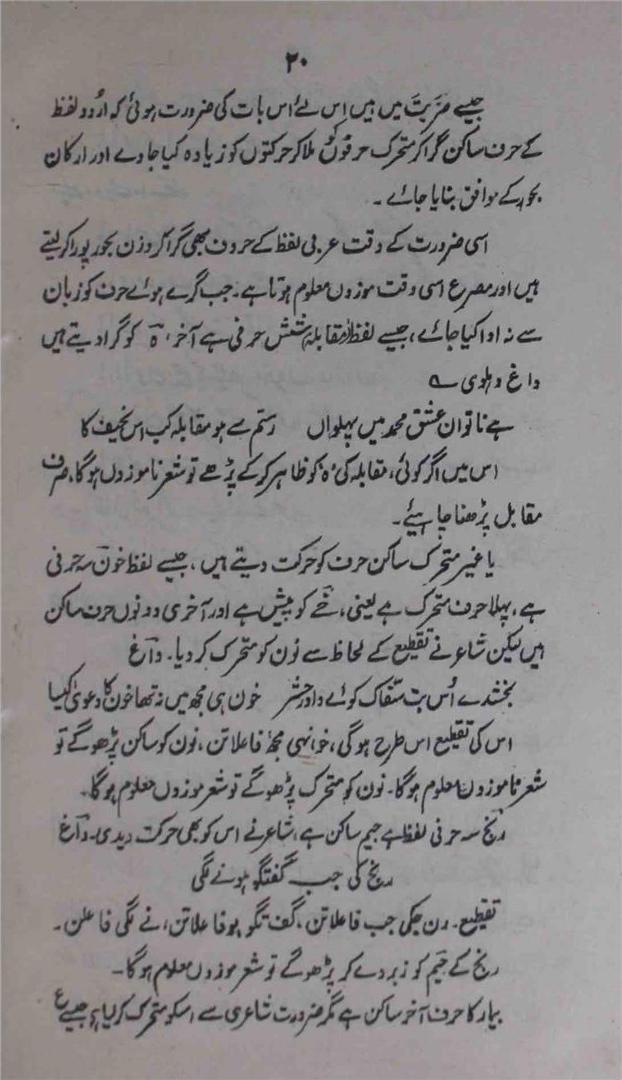 ۲۰
جیسے ضربت میں ہیں اس لئے اس بات کی ضرورت ہوئی کہ اُردو لفظ
کے حرف ساکن گرا کر متحرک حرفوں ملا کر حرکتوں کو زیادہ کیا جاوے اور ارکان
بحور کے موافق بنایا جائے ۔
اسی ضرورت کے وقت عربی لفظ کے حروف بھی گرا کر وزن بحور پورا کر لیتے
ہیں اور مصرع اسی وقت موزوں معلوم ہوتا ہے ۔ جب گرے ہوئے حرف کو زبان
سے نہ ادا کیا جائے ، جیسے لفظ مقابلہ شش حرفی ہے آخر ، ہ ، کو گرا دیتے ہیں
داغ دہلوی ؎
ہے ناتوان عشق محمد میں پہلواں رستم سے ہو مقابلہ کب اس نحیف کا
اس میں اگر کوئی ، مقابلہ کی ، ہ ، کو ظاہر کر کے پڑھے تو شعر ناموزوں ہوگا ، صرف
مقابل پڑھنا چاہیئے ۔
یا غیر متحرک ساکن حرف کو حرکت دیتے ہیں ، جیسے لفظ خون سہ حرفی
ہے ، پہلا حرف متحرک ہے یعنی ، خے کو پیش ہے اور آخری دونوں حرف ساکن
ہیں لیکن شاعر نے تقطیع کے لحاظ سے نون کو متحرک کر دیا ۔ داغ
بخشدے اُس بت سفاک کو اے داور حشر خون ہی مجھ میں نہ تھا خون کا دعویٰ کیسا
اس کی تقطیع اس طرح ہوگی ، خونہی مجھ فاعلاتن ، نون کو ساکن پڑھو گے تو
شعر ناموزوں معلوم ہوگا ۔ نون کو متحرک پڑھو گے تو شعر موزوں معلوم ہوگا ۔
رنج سہ حرفی لفظ ہے جیم ساکن ہے ، شاعر نے اس کو بھی حرکت دیدی ۔ داغ
رنج کی جب گفتگو ہونے لگی
تقطیع ۔ رن جکی جب فاعلاتن ، گفتگو ہو فاعلاتن ، نے لگی فاعلن ۔
رنج کے جیم کو زبر دے کر پڑھو گے تو شعر موزوں معلوم ہوگا ۔
بیمار کا حرف آخر ساکن ہے مگر ضرورت شاعری سے اسکو متحرک کر لیا ہے جیسے ع